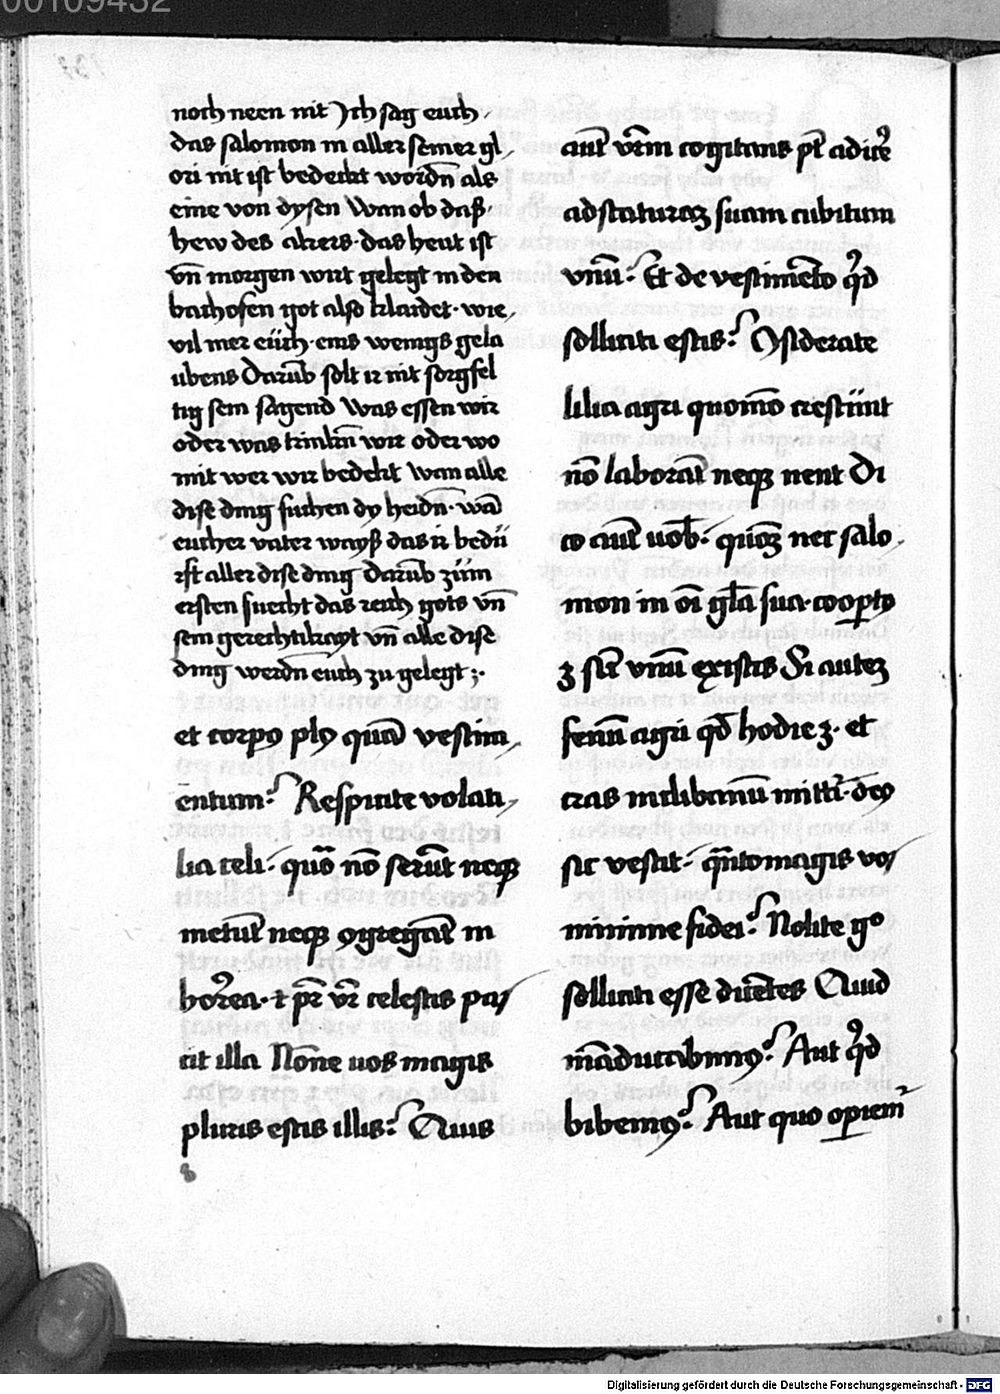 noch neen nit Jch sag euch
das salomon in aller seiner gl
ori nit ist bedeckt wordn̄ als
eine von dysen Wan ob daß
hew des akers · das heut ist
vn̄ morgen wirt gelegt in den
bachofen got also klaidet · wie
vil mer eüch · eins wenigs gela
ubens Darūb solt ir nit sorgfel
tig sein sagend Was essen wir
oder was trinkn̄ wir oder wo
mit wer wir bedekt Wan alle
dise ding suchen dy heidn̄ · wā
eucher vater wayß das ir bedü
rft aller dise ding Darūb züm
ersten suecht das reich gots vn̄
sein gerechtikayt vn̄ alle dise
ding werdn̄ euch zu gelegt ;·
et corpꝯ plꝯ quā vestim
entum? Respicite volati
lia celi · quō nō serūt neqꝫ
metūt neqꝫ ꝯgregāt in
horrea · ⁊ pr̄ vr̄ celestis pas
cit illa Nōne uos magis
pluris estis illis? Quis
aūt vr̄m cogitans pt̄ adicē
ad staturaꝫ suam cubitum
vnū? Et de vestimēto qͥd
solliciti estis? ꝯsiderate
lilia agri quomō crescünt
nō laborāt neqꝫ nent Di
co aūt uob̄ · quoꝫ nec salo
mon in oī gl̄a sua · coopertꝯ
ꝫ sic̄ vnū ex istis Si auteꝫ
fenū agri qd̄ hodie ꝫ · et
cras in clibanū mittit̄ · deꝯ
sic vestit · q̄nto magis vos
minime fidei? Nolite gͦ
solliciti esse dicētes Quid
māducabimꝯ? Aut qͥd
bibemꝯ? Aut quo operiem̄
Digitalisierung gefördert durch die Deutsche Forschungsgemeinschaft - DFG